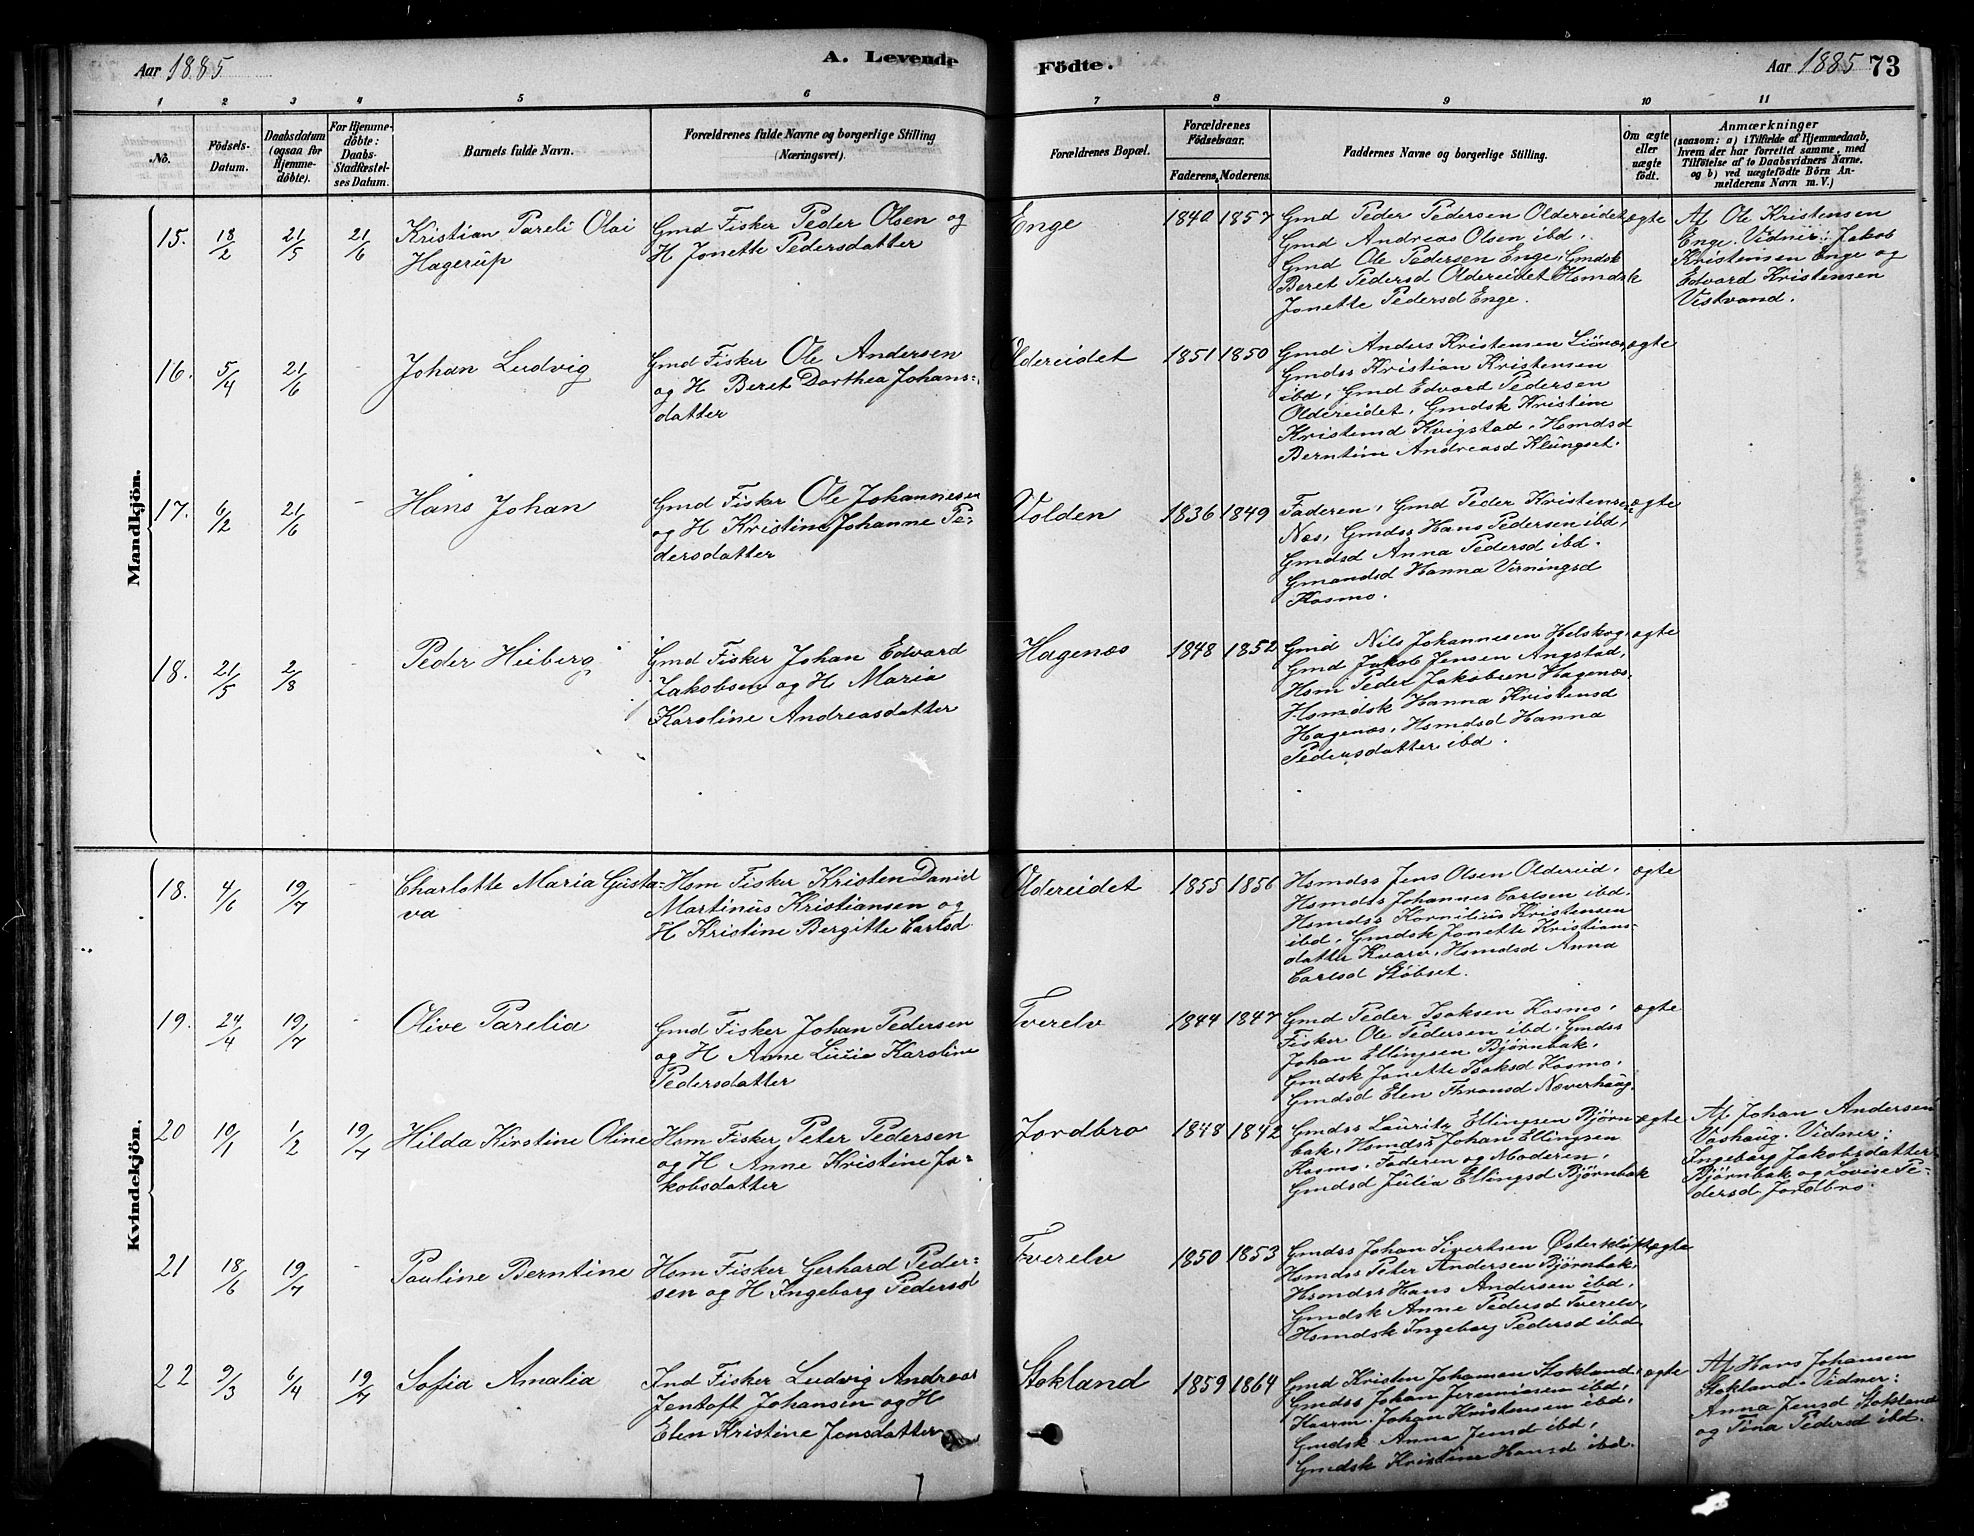 Aar 1885
A. Levende
Födte.
Aar 1885
73
1 2 3 4 5 6 7 8 9 10 11
No.
Födsels-
Datum.
Daabsdatum
(ogsaa for
Hjemme-
döbte).
For Hjemme-
döbte:
Daabs-
Stadfæstel-
ses Datum.
Barnets fulde Navn.
Forældrenes fulde Navne og borgerlige Stilling
(Næringsvei).
Forældrenes Bopæl.
Forældrenes
Födselsaar.
Faderens. Moderens.
Faddernes Navne og borgerlige Stilling.
Om ægte
eller
uægte
födt.
Anmærkninger
(saasom: a) i Tilfælde af Hjemmedaab,
hvem der har forrettet samme, med
Tilföielse af to Daabsvidners Navne.
og b) ved uægtefödte Börn An-
melderens Navn m. V.)
Mandkjön.
15. 18/2 21/5 21/6
Kristian Pareli Olai
Hagerup
Gmd Fisker Peder Olsen og
H Jonette Pedersdatter
Enge
1840 1857
Gmd Peder Pedersen Oldereidet
Gmd Andreas Olsen ibd.
Gmd Ole Pedersen Enge, Gmdsk
Beret Pedersd Oldereidet Hsmdsk
Jonette Pedersd Enge.
ægte
Af Ole Kristensen
Enge. Vidner: Jakob
Kristensen Enge og
Edvard Kristensen
Vestvand.
16. 5/4 21/6 -
Johan Ludvig
Gmd Fisker Ole Andersen
og H Beret Dorthea Johans-
datter
Oldereidet
1851 1850
Gmd Anders Kristensen Liønæs
Gmdss Kristian Kristensen
ibd, Gmd Edvard Pedersen
Oldereidet, Gmdsk Kristine
Kristensd Kvigstad, Hsmdsd
Berntine Andreasd Klungset.
ægte
17. 6/2 21/6 -
Hans Johan
Gmd Fisker Ole Johannesen
og H Kristine Johanne Pe-
dersdatter
Volden
1836 1849
Faderen, Gmd Peder Kristensen
Næs, Gmdss Hans Pedersen ibd,
Gmdsd Anna Pedersd ibd.
Gmandsd Hanna Verningsd
Kosmo.
ægte
18. 21/5 2/8 -
Peder Heiberg
Gmd Fisker Johan Edvard
Jakobsen og H Maria
Karoline Andreasdatter
Hagenæs
1848 1852
Gmd Nils Johannesen Helskog,
Gmd Jakob Jensen Angstad,
Hsm Peder Jakobsen Hagenæs,
Hsmdsk Hanna Kristensd
Hagenæs, Hsmdsd Hanna
Pedersdatter ibd.
ægte
Kvindekjön.
18. 4/6 19/7 -
Charlotte Maria Gusta-
va
Hsm Fisker Kristen Daniel
Martinus Kristiansen og
H Kristine Bergitte Carlsd.
Oldereidet
1855 1856
Hsmdss Jens Olsen Oldereid,
Hsmdss Johannes Carlsen ibd.
Hsmdss Kornilius Kristensen
ibd, Gmdsk Jonette Kristians-
datter Kvarv, Hsmdsd Anna
Carlsd Støbset.
ægte
19. 24/4 19/7 -
Olive Parelia
Gmd Fisker Johan Pedersen
og H Anne Lucia Karoline
Pedersdatter
Tverelv
1844 1847
Gmd Peder Isaksen Kosmo,
Fisker Ole Pedersen ibd, Gmdss
Johan Ellingsen Bjørnbak,
Gmdsk Jonette Isaksd Kosmo,
Gmdsd Elen Thronsd Næverhaug.
ægte
20 10/1 1/2 19/7
Hilda Kirstine Oline
Hsm Fisker Peter Pedersen
og H Anne Kristine Ja-
kobsdatter
Jordbro
1848 1842
Gmdss Lauritz Ellingsen Bjørn-
bak, Hsmdss Johan Ellingsen
Kosmo, Faderen og Moderen,
Gmdsd Julia Ellingsd Bjørnbak
ægte
Af Johan Andersen
Vashaug. Vidner:
Ingeborg Jakobsdatter
Bjørnbak og Lovise Pe-
dersd Jordbro.
21 18/6 19/7 -
Pauline Berntine
Hsm Fisker Gerhard Peder-
sen og H Ingeborg Pedersd
Tverelv
1850 1853
Gmdss Johan Sivertsen Østerkløft
Hsmdss Peter Andersen Bjørnbak,
Hsmdss Hans Andersen ibd,
Gmdsk Anne Pedersd Tverelv,
Hsmdsk Ingeborg Pedersd ibd.
ægte
22 9/3 6/4 19/7
Sofia Amalia
Ind Fisker Ludvig Andreas
Jentoft Johansen og H
Elen Kristine Jensdatter
Stokland
1859 1864
Gmd Kristen Johansen Stokland,
Gmdss Johan Jeremiasen ibd,
Kaarm. Johan Kristensen ibd,
Gmdsk Anna Jensd ibd,
Gmdsk Kristine Hansd ibd.
ægte
Af Hans Johansen
Stokland. Vidner:
Anna Jensd Stokland
og Tina Pedersd ibd.